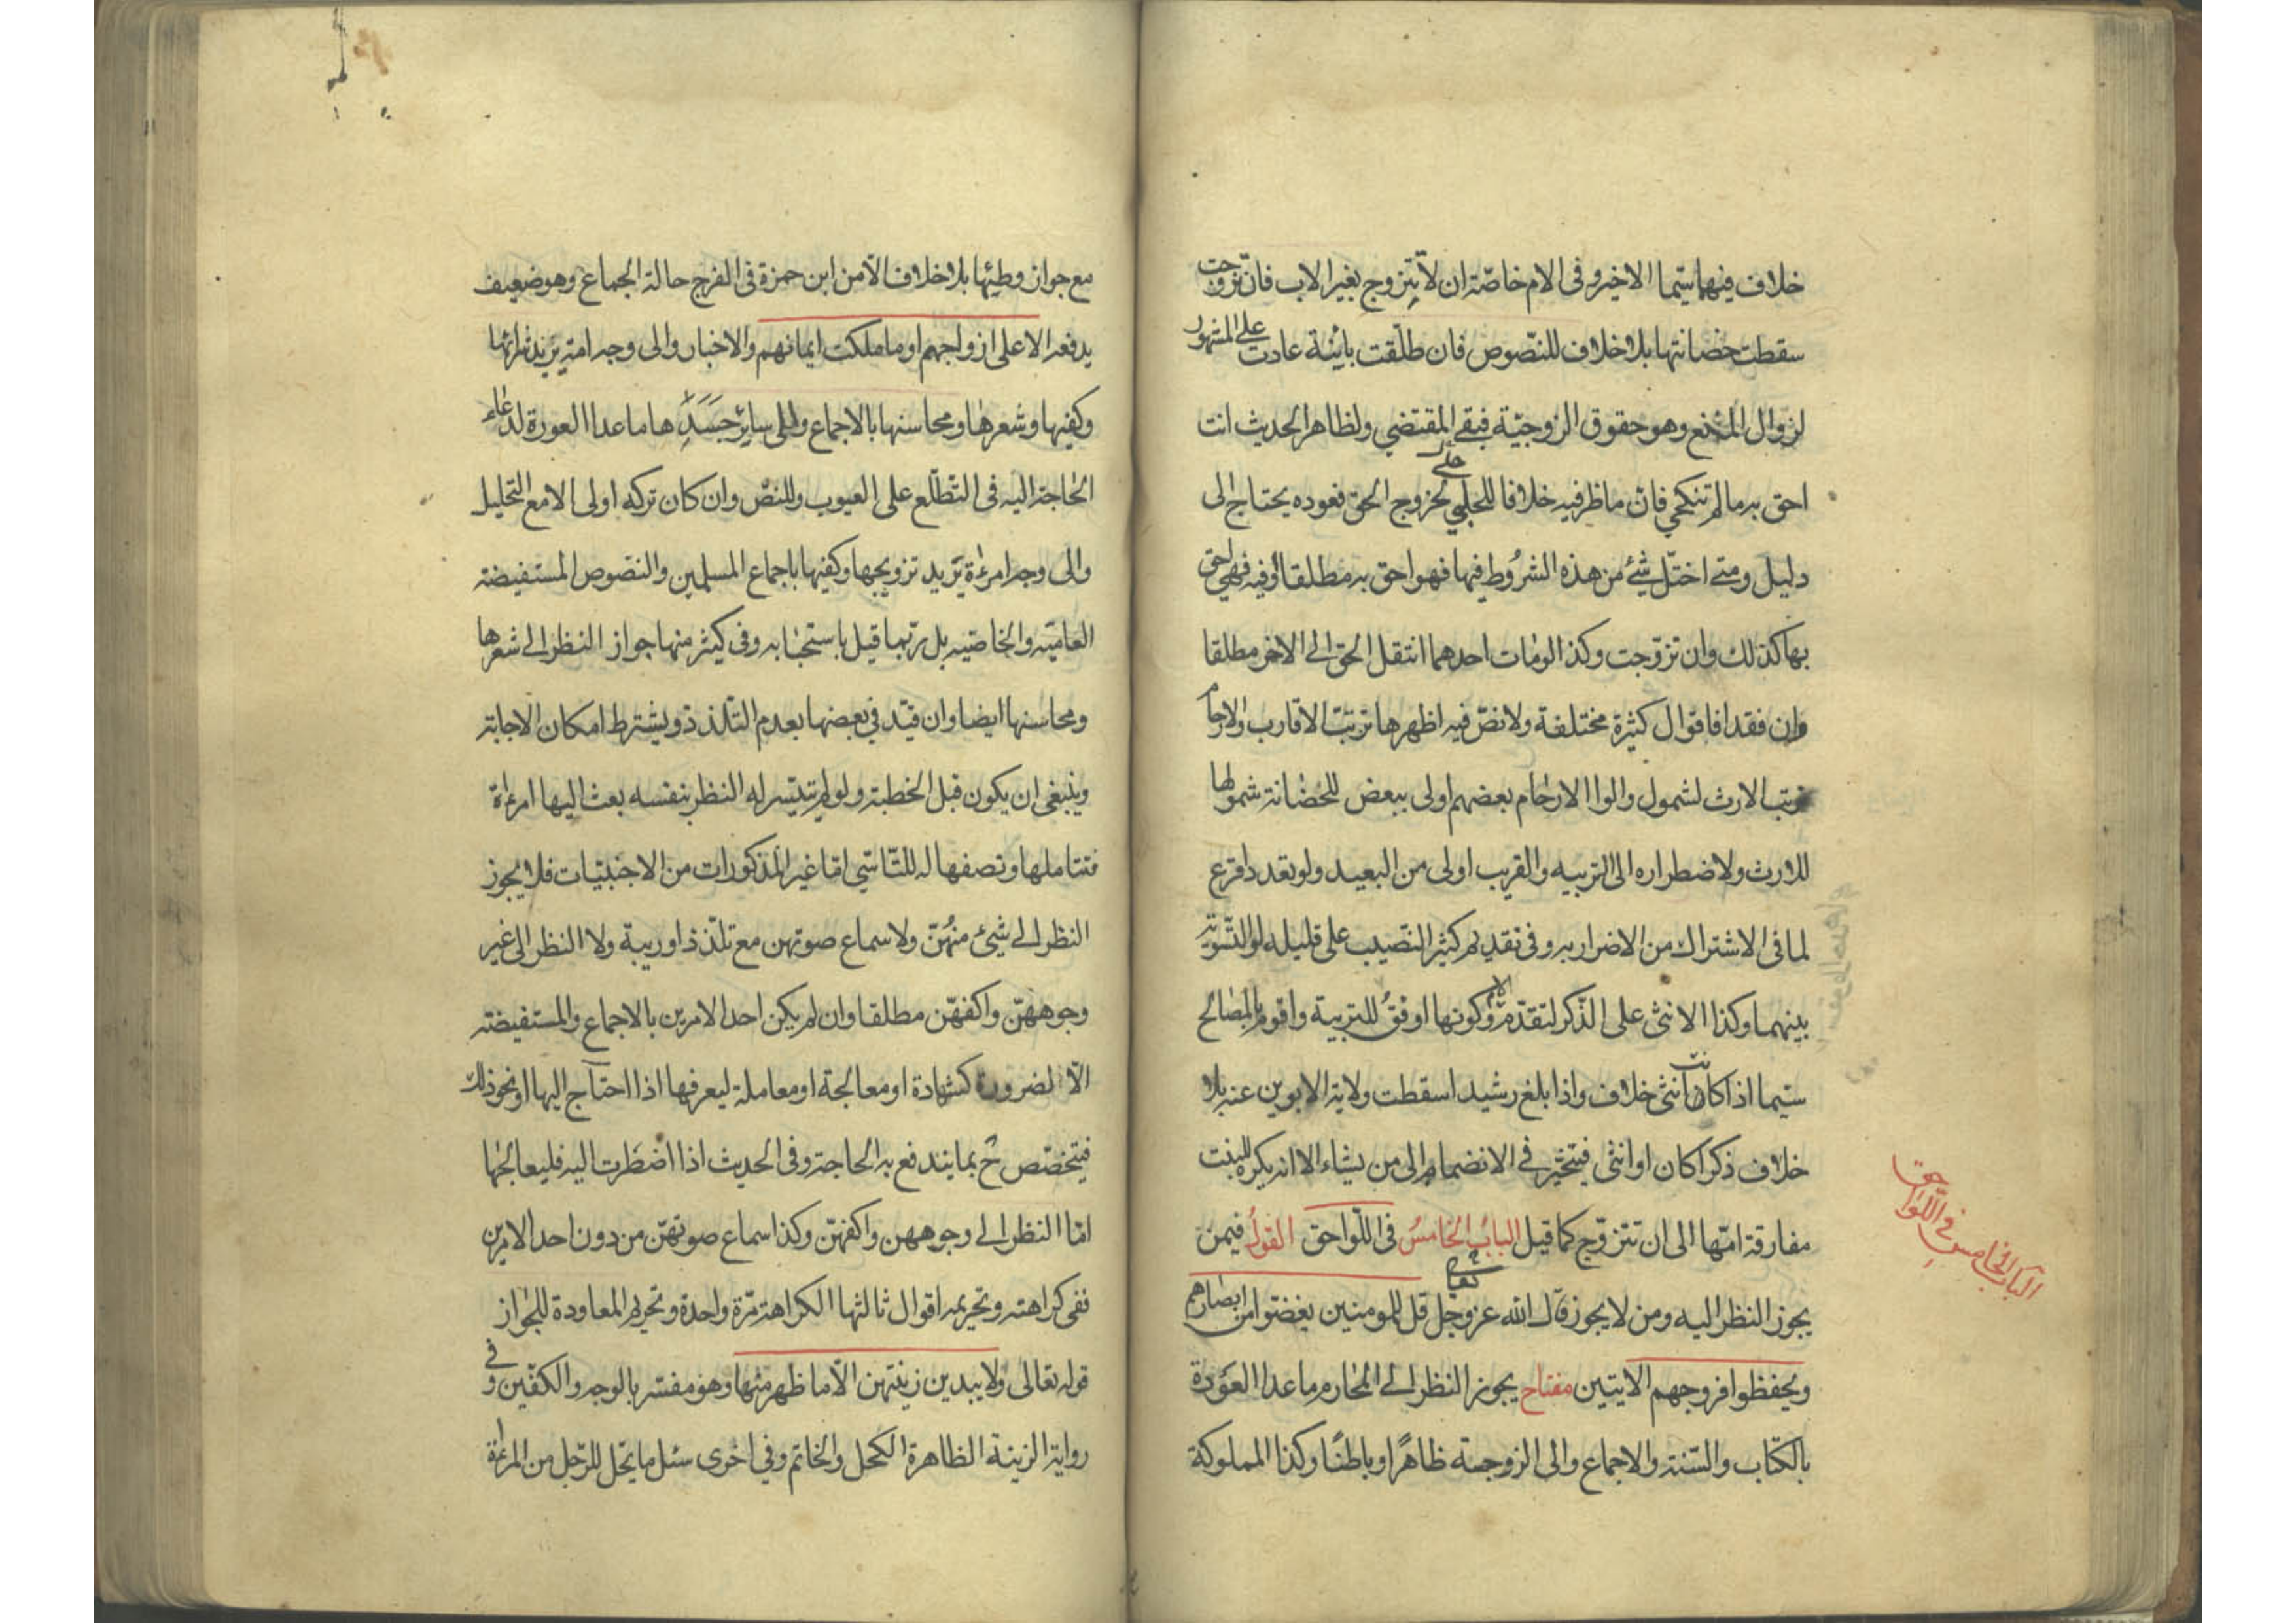 خلاف فيهما سيّما الاخير و فى الام خاصّة ان لا تتزوج بغير الاب فان تزوجت
سقطت حضانتها بلا خلاف للنّصوص فان طلّقت بائنة عادت على المشهور
لزوال المانع وهو حقوق الزوجيّة فبقى المقتضي ولظاهر الحديث انت
احق به ما لم تنكحي فانّ ما ظرفيه خلافا للحلّي لخروج الحق فعوده يحتاج الى
دليل ومتى اختلّ شئ من هذه الشروط فيها فهو احق به مطلقا او فيه فهى احق
بها كذلك وان تزوّجت وكذا لو مات احدهما انتقل الحق الى الاخر مطلقا
وان فقدا فاقوال كثيرة مختلفة ولا نصّ فيه اظهرها ترتّب الاقارب والارحام
ترتب الارث لشمول والوا الارحام بعضهم اولى ببعض للحضانة شمولها
للارث ولاضطراره الى التربيه والقريب اولى من البعيد ولو تعدد اقرع
لما فى الاشتراك من الاضرار به و فى تقديم كثير النّصيب على قليله او التّسوية
بينهما وكذا الانثى على الذّكر لتقدّم الام وكونها اوفق للتربية واقوم بالمصالح
سيّما اذا كانت انثى خلاف واذا بلغ رشيدا سقطت ولاية الابوين عنه بلا
خلاف ذكرا كان او انثى فيتخيّر في الانضمام الى من يشاء الا انه يكره للبنت
مفارقة امّها الى ان تتزوّج كما قيل الباب الخامس فى اللّواحق القول فيمن
يجوز النظر اليه ومن لا يجوز قال الله عز وجل قل للمومنين يغضوا من ابصارهم
ويحفظوا فروجهم الايتين مفتاح يجوز النظر الى المحارم ما عدا العورة
بالكتاب والسّنة والاجماع والى الزوجة ظاهرًا وباطنًا وكذا المملوكة
الباب الخامس فى اللواحق
مع جواز وطيها بلا خلاف الّا من ابن حمزة فى الفرج حالة الجماع وهو ضعيف
يدفعه الا على ازواجهم او ما ملكت ايمانهم والاخبار والى وجه امة يريد شرائها
وكفيها وشعرها ومحاسنها بالاجماع والى ساير جسدها ما عدا العورة لدعاء
الحاجة اليه فى التطلّع على العيوب وللنصّ وان كان تركه اولى الا مع التحليل
والى وجه امرءة يريد تزويجها وكفيها باجماع المسلمين والنصوص المستفيضة
العاميّه والخاصّيه بل ربّما قيل باستحبابه و فى كثير منها جواز النظر الى شعرها
ومحاسنها ايضا وان قيّد في بعضها بعدم التلذذ ويشترط امكان الاجابة
وينبغى ان يكون قبل الخطبة ولو لم تيسر له النظر بنفسه بعث اليها امرءة
فتتاملها وتصفها له للتّاسّي امّا غير المذكورات من الاجنبيّات فلا يجوز
النظر الى شئ منهنّ ولا سماع صوتهن مع تلذّذ او ريبة ولا النظر الى غير
وجوههنّ واكفهّن مطلقا وان لم يكن احد الامرين بالاجماع والمستفيضة
الّا لضرورة كشهادة او معالجة او معاملة ليعرفها اذا احتاج اليها او نحو ذلك
فيتخصّص ح بما يندفع به الحاجة وفى الحديث اذا اضطرت اليه فليعالجها
امّا النظر الى وجوههن واكفهنّ وكذا سماع صوتهنّ من دون احد الامرين
نفى كراهته وتحريمه اقوال ثالثها الكراهة مرّة واحدة وتحريم المعاودة للجواز
قوله تعالى ولا يبدين زينتهن الّا ما ظهر منها وهو مفسّر بالوجه والكفّين و في
رواية الزينة الظاهرة الكحل والخاتم وفي اخرى سئل ما يحل للرّجل من المرءة